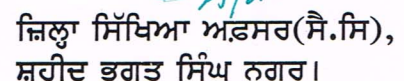 ਜ਼ਿਲ੍ਹਾ ਸਿੱਖਿਆ ਅਫ਼ਸਰ(ਸੈ.ਸਿ),
ਸ਼ਹੀਦ ਭਗਤ ਸਿੰਘ ਨਗਰ।